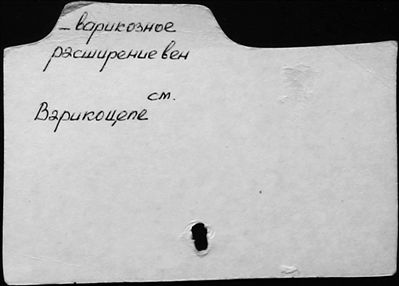 – варикозное
расширение вен
см.
Варикоцеле